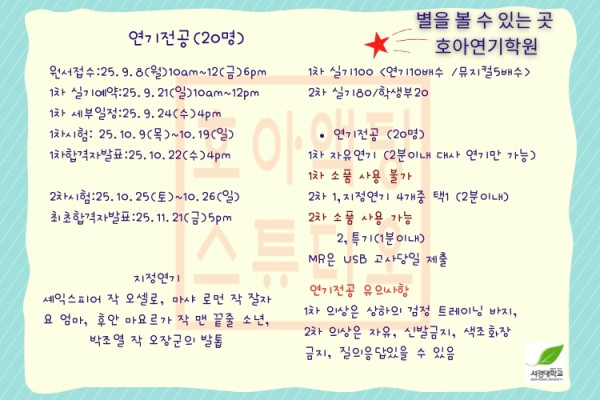 연기전공(20명)
원서접수:25.9.8(월)10am~12(금)6pm
1차 실기예약:25.9.21(일)10am~12pm
1차 세부일정:25.9.24(수)4pm
1차시험: 25.10.9(목)~10.19(일)
1차합격자발표:25.10.22(수)4pm
2차시험:25.10.25(토)~10.26(일)
최초합격자발표:25.11.21(금)5pm
지정연기
셰익스피어 작 오셀로, 마샤 로먼 작 잘자
요 엄마, 후안 마요르가 작 맨 끝줄 소년,
박조열 작 오장군의 발톱
별을 볼 수 있는 곳
호아연기학원
1차 실기100 <연기10배수 /뮤지컬5배수>
2차 실기80/학생부20
• 연기전공 (20명)
1차 자유연기 (2분이내 대사 연기만 가능)
1차 소품 사용 불가
2차 1,지정연기 4개중 택1 (2분이내)
2차 소품 사용 가능
2,특기(1분이내)
MR은 USB 고사당일 제출
연기전공 유의사항
1차 의상은 상하의 검정 트레이닝 바지,
2차 의상은 자유, 신발금지, 색조화장
금지, 질의응답있을 수 있음
호아액팅
스튜디오
서경대학교